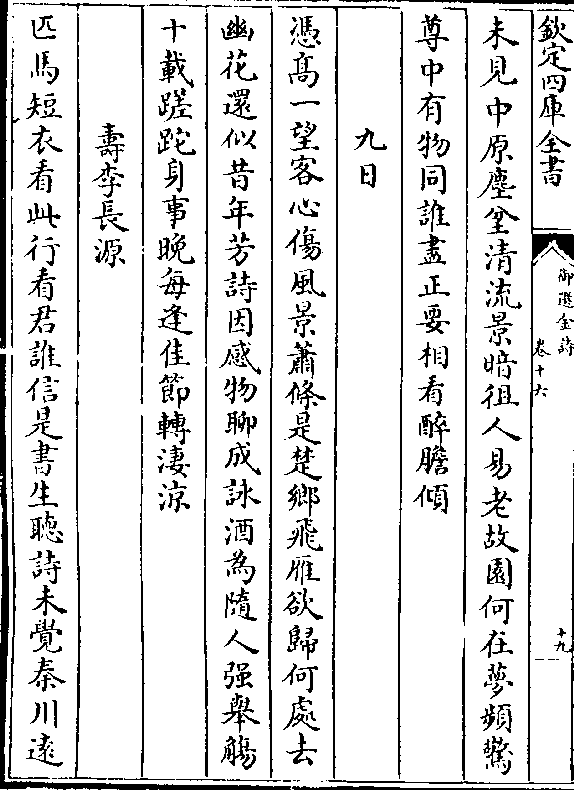 欽定四庫全書
御選金詩
卷十六
十九
未見中原塵坌清流景暗徂人易老故園何在夢頻驚
尊中有物同誰盡正要相看醉膽傾
九日
憑髙一望客心傷風景蕭條是楚鄉飛雁欲歸何處去
幽花還似昔年芳詩因感物聊成詠酒為隨人强舉觴
十載蹉跎身事晚每逢佳節轉淒涼
壽李長源
匹馬短衣看此行看君誰信是書生聽詩未覺秦川遠